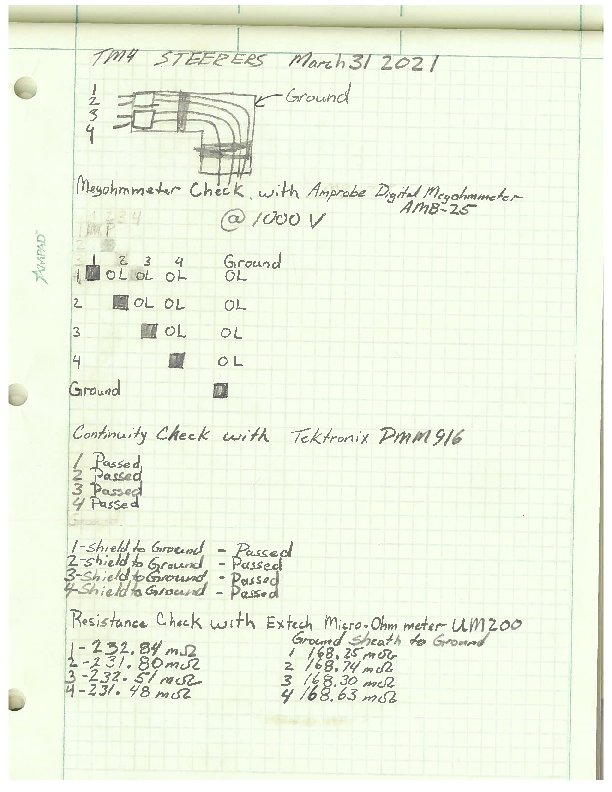 TM4 STEERERS March 31 2021
1
2
3
4
Ground
Megohmmeter Check with Amprobe Digital Megohmmeter
AMB-25
@ 1000 V
AMPAD
1 2 3 4 Ground
1 OL OL OL OL
2 OL OL OL
3 OL OL
4 OL
Ground
Continuity Check with Tektronix DMM916
1 Passed
2 Passed
3 Passed
4 Passed
1-Shield to Ground - Passed
2-Shield to Ground - Passed
3-Shield to Ground - Passed
4-Shield to Ground - Passed
Resistance Check with Extech Micro-Ohm meter UM200
Ground Sheath to Ground
1-232.84 mΩ 1 168.25 mΩ
2-231.80 mΩ 2 168.74 mΩ
3-232.51 mΩ 3 168.30 mΩ
4-231.48 mΩ 4 168.63 mΩ